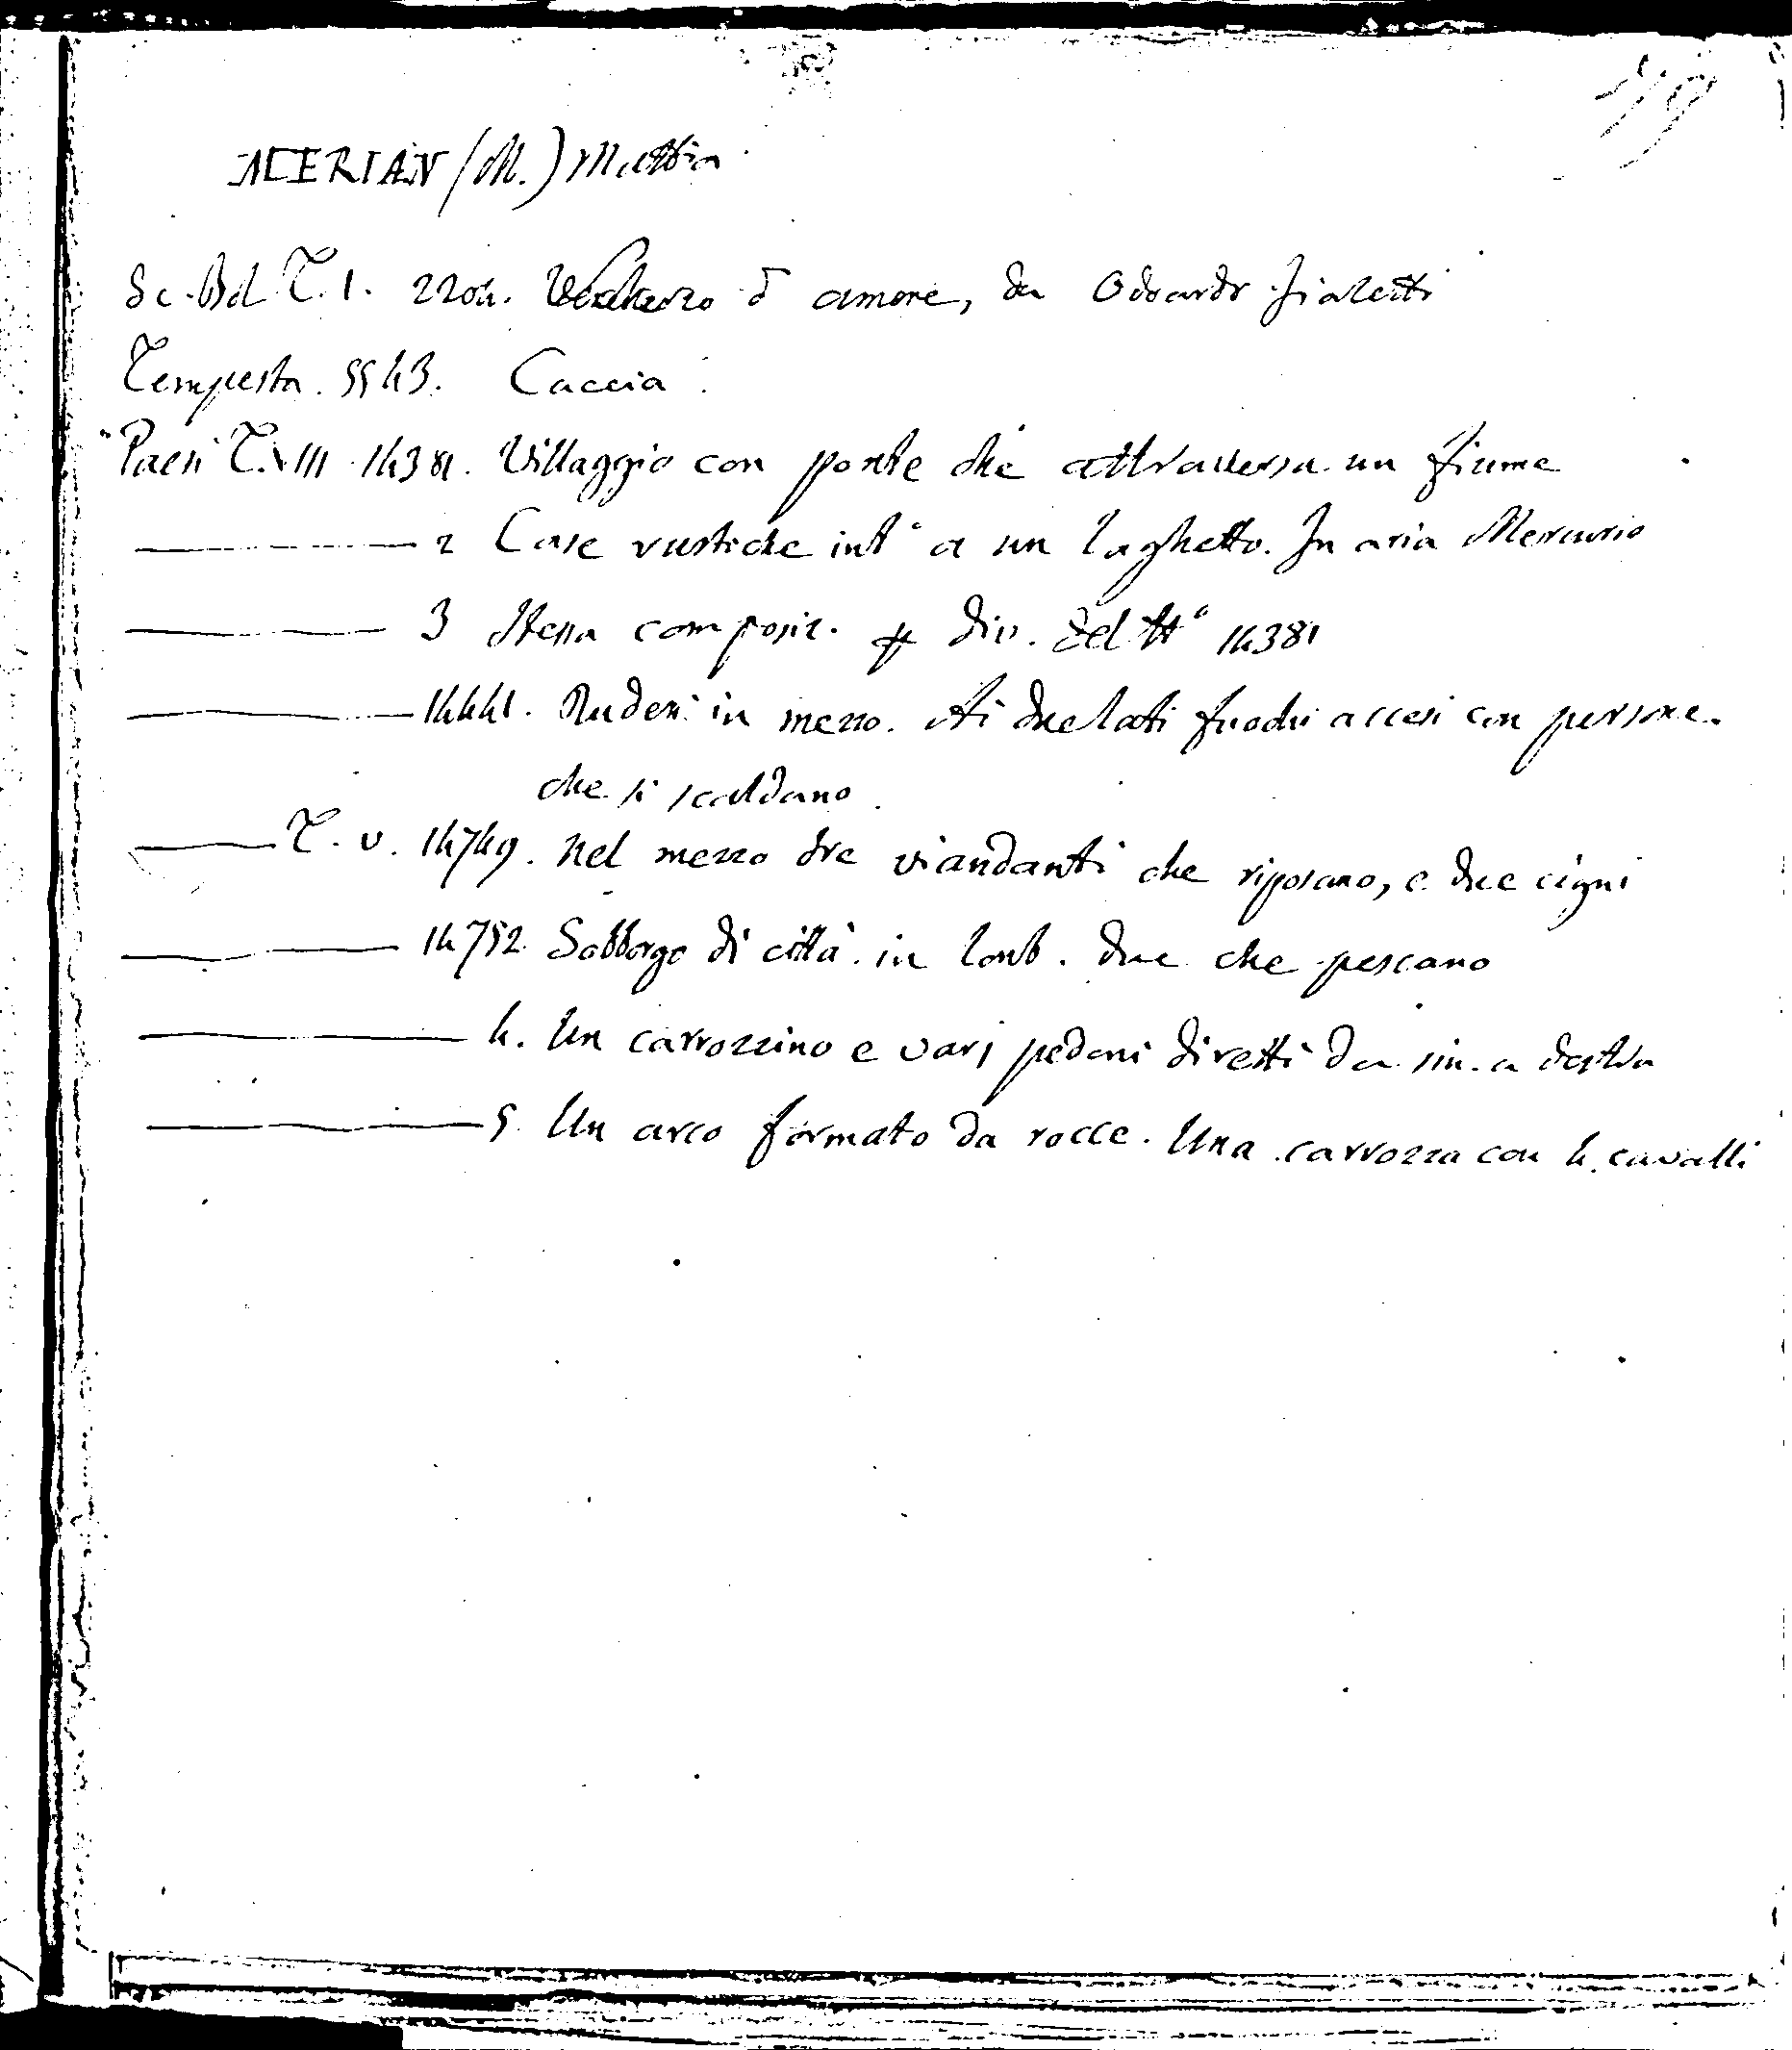 79
MERIAN (M.) Mattia
Sc. Bol. T. I. 2204. Scherzo d'amore, da Odoardo Fialetti
Tempesta. 5543. Caccia.
Paesi T. III 14381. Villaggio con ponte che attraversa un fiume
2 Case rustiche int° a un laghetto. In aria Mercurio
3 Stessa composiz. div. del 14381
14441. Ruderi in mezzo. Ai due lati fuochi accesi con persone
che si scaldano.
T. V. 14749. Nel mezzo tre viandanti che riposano, e due cigni
14752. Sobborgo di città in lont. due che pescano
4. Un carrozzino e varj pedoni diretti da sin. a destra
5. Un arco formato da rocce. Una carrozza con 4 cavalli